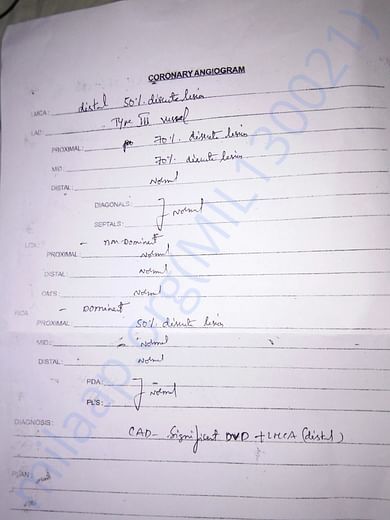 CORONARY ANGIOGRAM
LMCA: distal 50% discrete lesion
LAD: - Type III vessel
PROXIMAL: 70% discrete lesion
MID: 70% discrete lesion
DISTAL: Normal
DIAGONALS:
SEPTALS: } Normal
LCX: - non-Dominant
PROXIMAL Normal
DISTAL: Normal
OM'S: Normal
RCA - Dominent
PROXIMAL 50% discrete lesion
MID: Normal
DISTAL: Normal
PDA:
PLB: } Normal
DIAGNOSIS:
CAD - Significant DVD + LMCA (distal)
PLAN:
milaap.org(MIL130021)